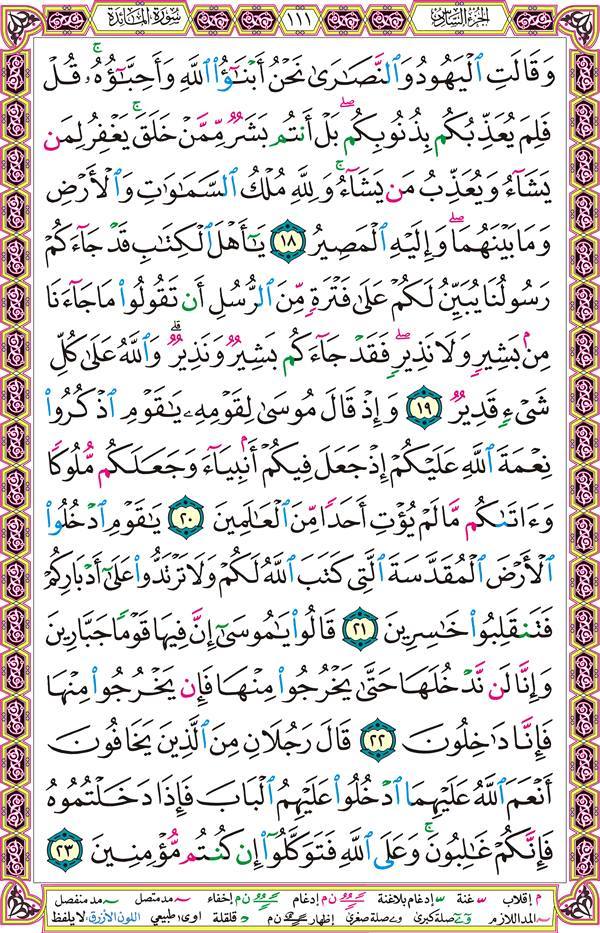 الجزء السادس ١١١ سورة المائدة
وَقَالَتِ ٱلْيَهُودُ وَٱلنَّصَٰرَىٰ نَحْنُ أَبْنَٰٓؤُا۟ ٱللَّهِ وَأَحِبَّٰٓؤُهُۥ ۚ قُلْ
فَلِمَ يُعَذِّبُكُم بِذُنُوبِكُم ۖ بَلْ أَنتُم بَشَرٌ مِّمَّنْ خَلَقَ ۚ يَغْفِرُ لِمَن
يَشَآءُ وَيُعَذِّبُ مَن يَشَآءُ ۚ وَلِلَّهِ مُلْكُ ٱلسَّمَٰوَٰتِ وَٱلْأَرْضِ
وَمَا بَيْنَهُمَا ۖ وَإِلَيْهِ ٱلْمَصِيرُ ١٨ يَٰٓأَهْلَ ٱلْكِتَٰبِ قَدْ جَآءَكُمْ
رَسُولُنَا يُبَيِّنُ لَكُمْ عَلَىٰ فَتْرَةٍ مِّنَ ٱلرُّسُلِ أَن تَقُولُوا۟ مَا جَآءَنَا
مِنۢ بَشِيرٍ وَلَا نَذِيرٍ ۖ فَقَدْ جَآءَكُم بَشِيرٌ وَنَذِيرٌ ۗ وَٱللَّهُ عَلَىٰ كُلِّ
شَىْءٍ قَدِيرٌ ١٩ وَإِذْ قَالَ مُوسَىٰ لِقَوْمِهِۦ يَٰقَوْمِ ٱذْكُرُوا۟
نِعْمَةَ ٱللَّهِ عَلَيْكُمْ إِذْ جَعَلَ فِيكُمْ أَنۢبِيَآءَ وَجَعَلَكُم مُّلُوكًا
وَءَاتَىٰكُم مَّا لَمْ يُؤْتِ أَحَدًا مِّنَ ٱلْعَٰلَمِينَ ٢٠ يَٰقَوْمِ ٱدْخُلُوا۟
ٱلْأَرْضَ ٱلْمُقَدَّسَةَ ٱلَّتِى كَتَبَ ٱللَّهُ لَكُمْ وَلَا تَرْتَدُّوا۟ عَلَىٰٓ أَدْبَارِكُمْ
فَتَنقَلِبُوا۟ خَٰسِرِينَ ٢١ قَالُوا۟ يَٰمُوسَىٰٓ إِنَّ فِيهَا قَوْمًا جَبَّارِينَ
وَإِنَّا لَن نَّدْخُلَهَا حَتَّىٰ يَخْرُجُوا۟ مِنْهَا فَإِن يَخْرُجُوا۟ مِنْهَا
فَإِنَّا دَٰخِلُونَ ٢٢ قَالَ رَجُلَانِ مِنَ ٱلَّذِينَ يَخَافُونَ
أَنْعَمَ ٱللَّهُ عَلَيْهِمَا ٱدْخُلُوا۟ عَلَيْهِمُ ٱلْبَابَ فَإِذَا دَخَلْتُمُوهُ
فَإِنَّكُمْ غَٰلِبُونَ ۚ وَعَلَى ٱللَّهِ فَتَوَكَّلُوٓا۟ إِن كُنتُم مُّؤْمِنِينَ ٢٣
م إقلاب غنة إدغام بلاغنة ن م إدغام ن م إخفاء مد متصل مد منفصل
المد اللازم صلة كبرى صلة صغرى إظهار ن م قلقلة اوى طبيعي اللون الأزرق لا يلفظ